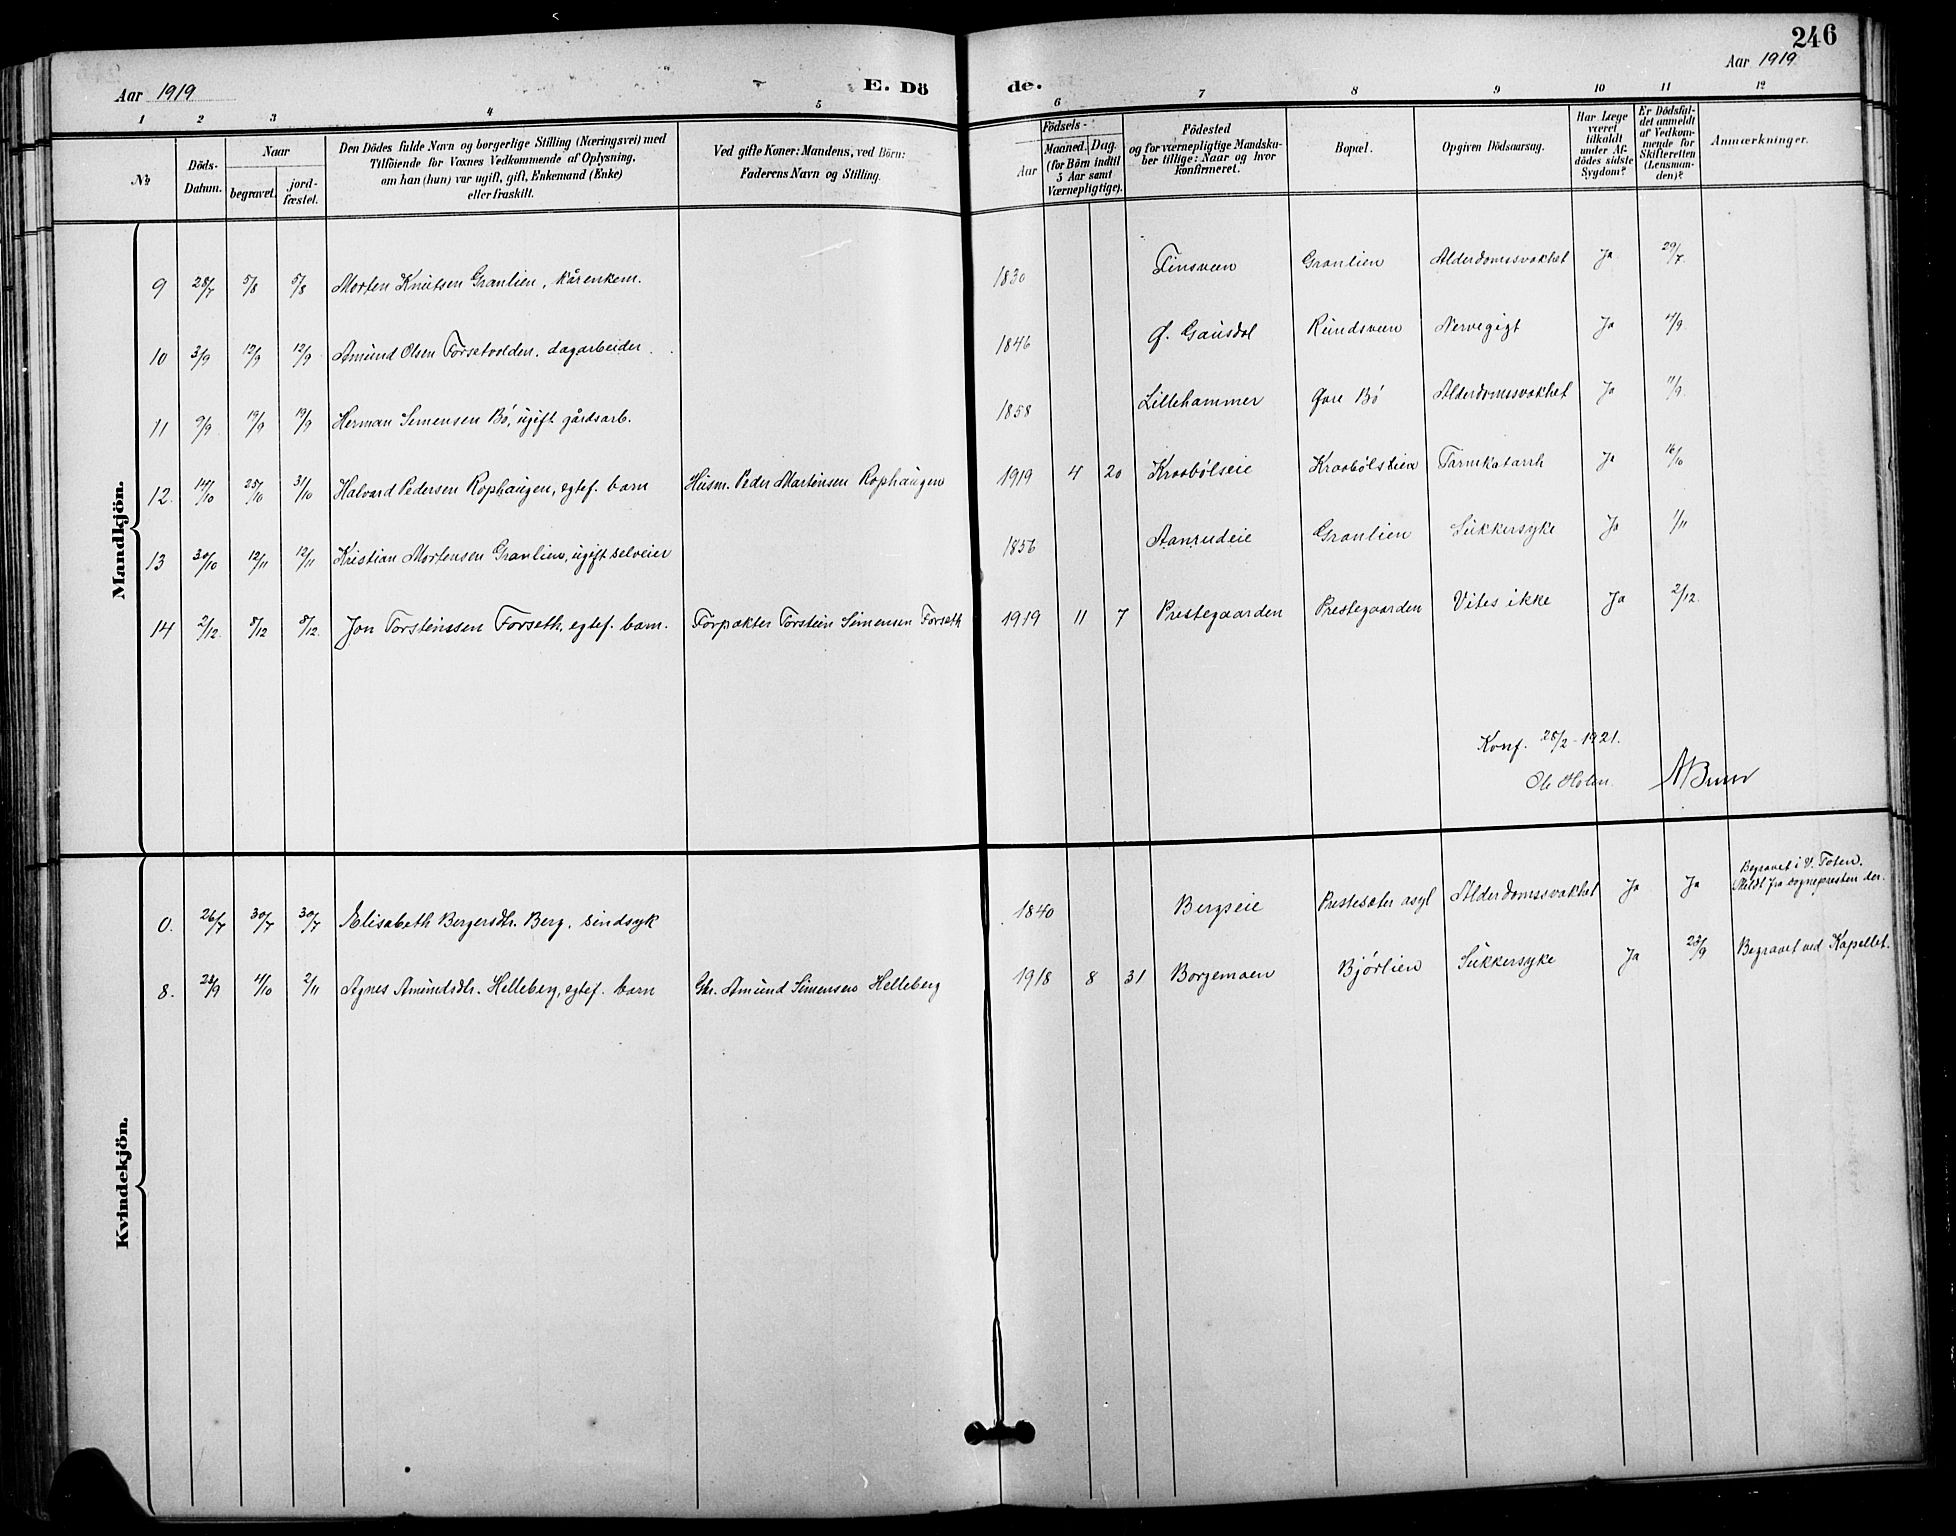 246
Aar 1919
E. Dö
de.
Aar 1919
1 2 3 4 5 6 7 8 9 10 11 12
No
Döds-
Datum.
Naar
begravet.
jord-
fæstet.
Den Dödes fulde Navn og borgerlige Stilling (Næringsvei) med
Tilföiende for Voxnes Vedkommende af Oplysning,
om han (hun) var ugift, gift, Enkemand (Enke)
eller fraskilt.
Ved gifte Koner: Mandens, ved Börn:
Faderens Navn og Stilling.
Födsels-
Aar
Maaned. Dag.
(for Börn indtil
5 Aar samt
Værnepligtige).
Födested
og for værnepligtige Mandska-
ber tillige: Naar og hvor
konfirmeret.
Bopæl.
Opgiven Dödsaarsag.
Har Læge
været
tilkaldt
under Af-
dödes sidste
Sygdom?
Er Dödsfal-
det anmeldt
af Vedkom-
mende for
Skifteretten
(Lensman-
den)?
Anmærkninger.
Mandkjön.
9 28/7 5/8 5/8 Morten Knutsen Granlien, kårenkem. 1830 Finsveen Granlien Alderdomssvakhet Ja 29/7
10 3/9 12/9 12/9 Amund Olsen Forsetvolden, dagarbeider. 1846 Ø. Gausdal Rundsveen Nervegigt Ja 4/9
11 9/9 19/9 19/9 Herman Simensen Bö, ugift gårdsarb. 1858 Lillehammer Øvre Bö Alderdomssvakhet Ja 11/9.
12. 14/10 25/10 31/10 Halvard Pedersen Rophaugen, egtef. barn Husm. Peder Martinsen Rophaugen 1919 4 20 Kraabölseie Kraabölslien Tarmkatarrh Ja 16/10
13 30/10 12/11 12/11 Kristian Mortensen Granlien, ugift selveier 1856 Aanrudeie Granlien Sukkersyke Ja 1/11
14 2/12 8/12 8/12. Jon Torsteinssen Forseth, egtef. barn. Forpakter Torstein Simensen Forseth 1919 11 7 Prestegaarden Prestegaarden Vites ikke Ja 2/12.
Konf. 28/2-1921.
Ole Holen.
Kvindekjön.
0. 26/7 30/7 30/7 Elisabeth Bergersdtr. Berg, sindsyk 1840 Bergseie Prestesæter asyl Alderdomssvakhet Ja Ja Begravet i V. Toten.
Meldt fra sognepresten der.
8. 22/9 4/10 2/11 Agnes Amundsdtr. Helleberg, egtef. barn Gbr. Amund Simensen Helleberg 1918 8 31 Borgemoen Bjørlien Sukkersyke Ja 23/9 Begravet ved Kapellet.